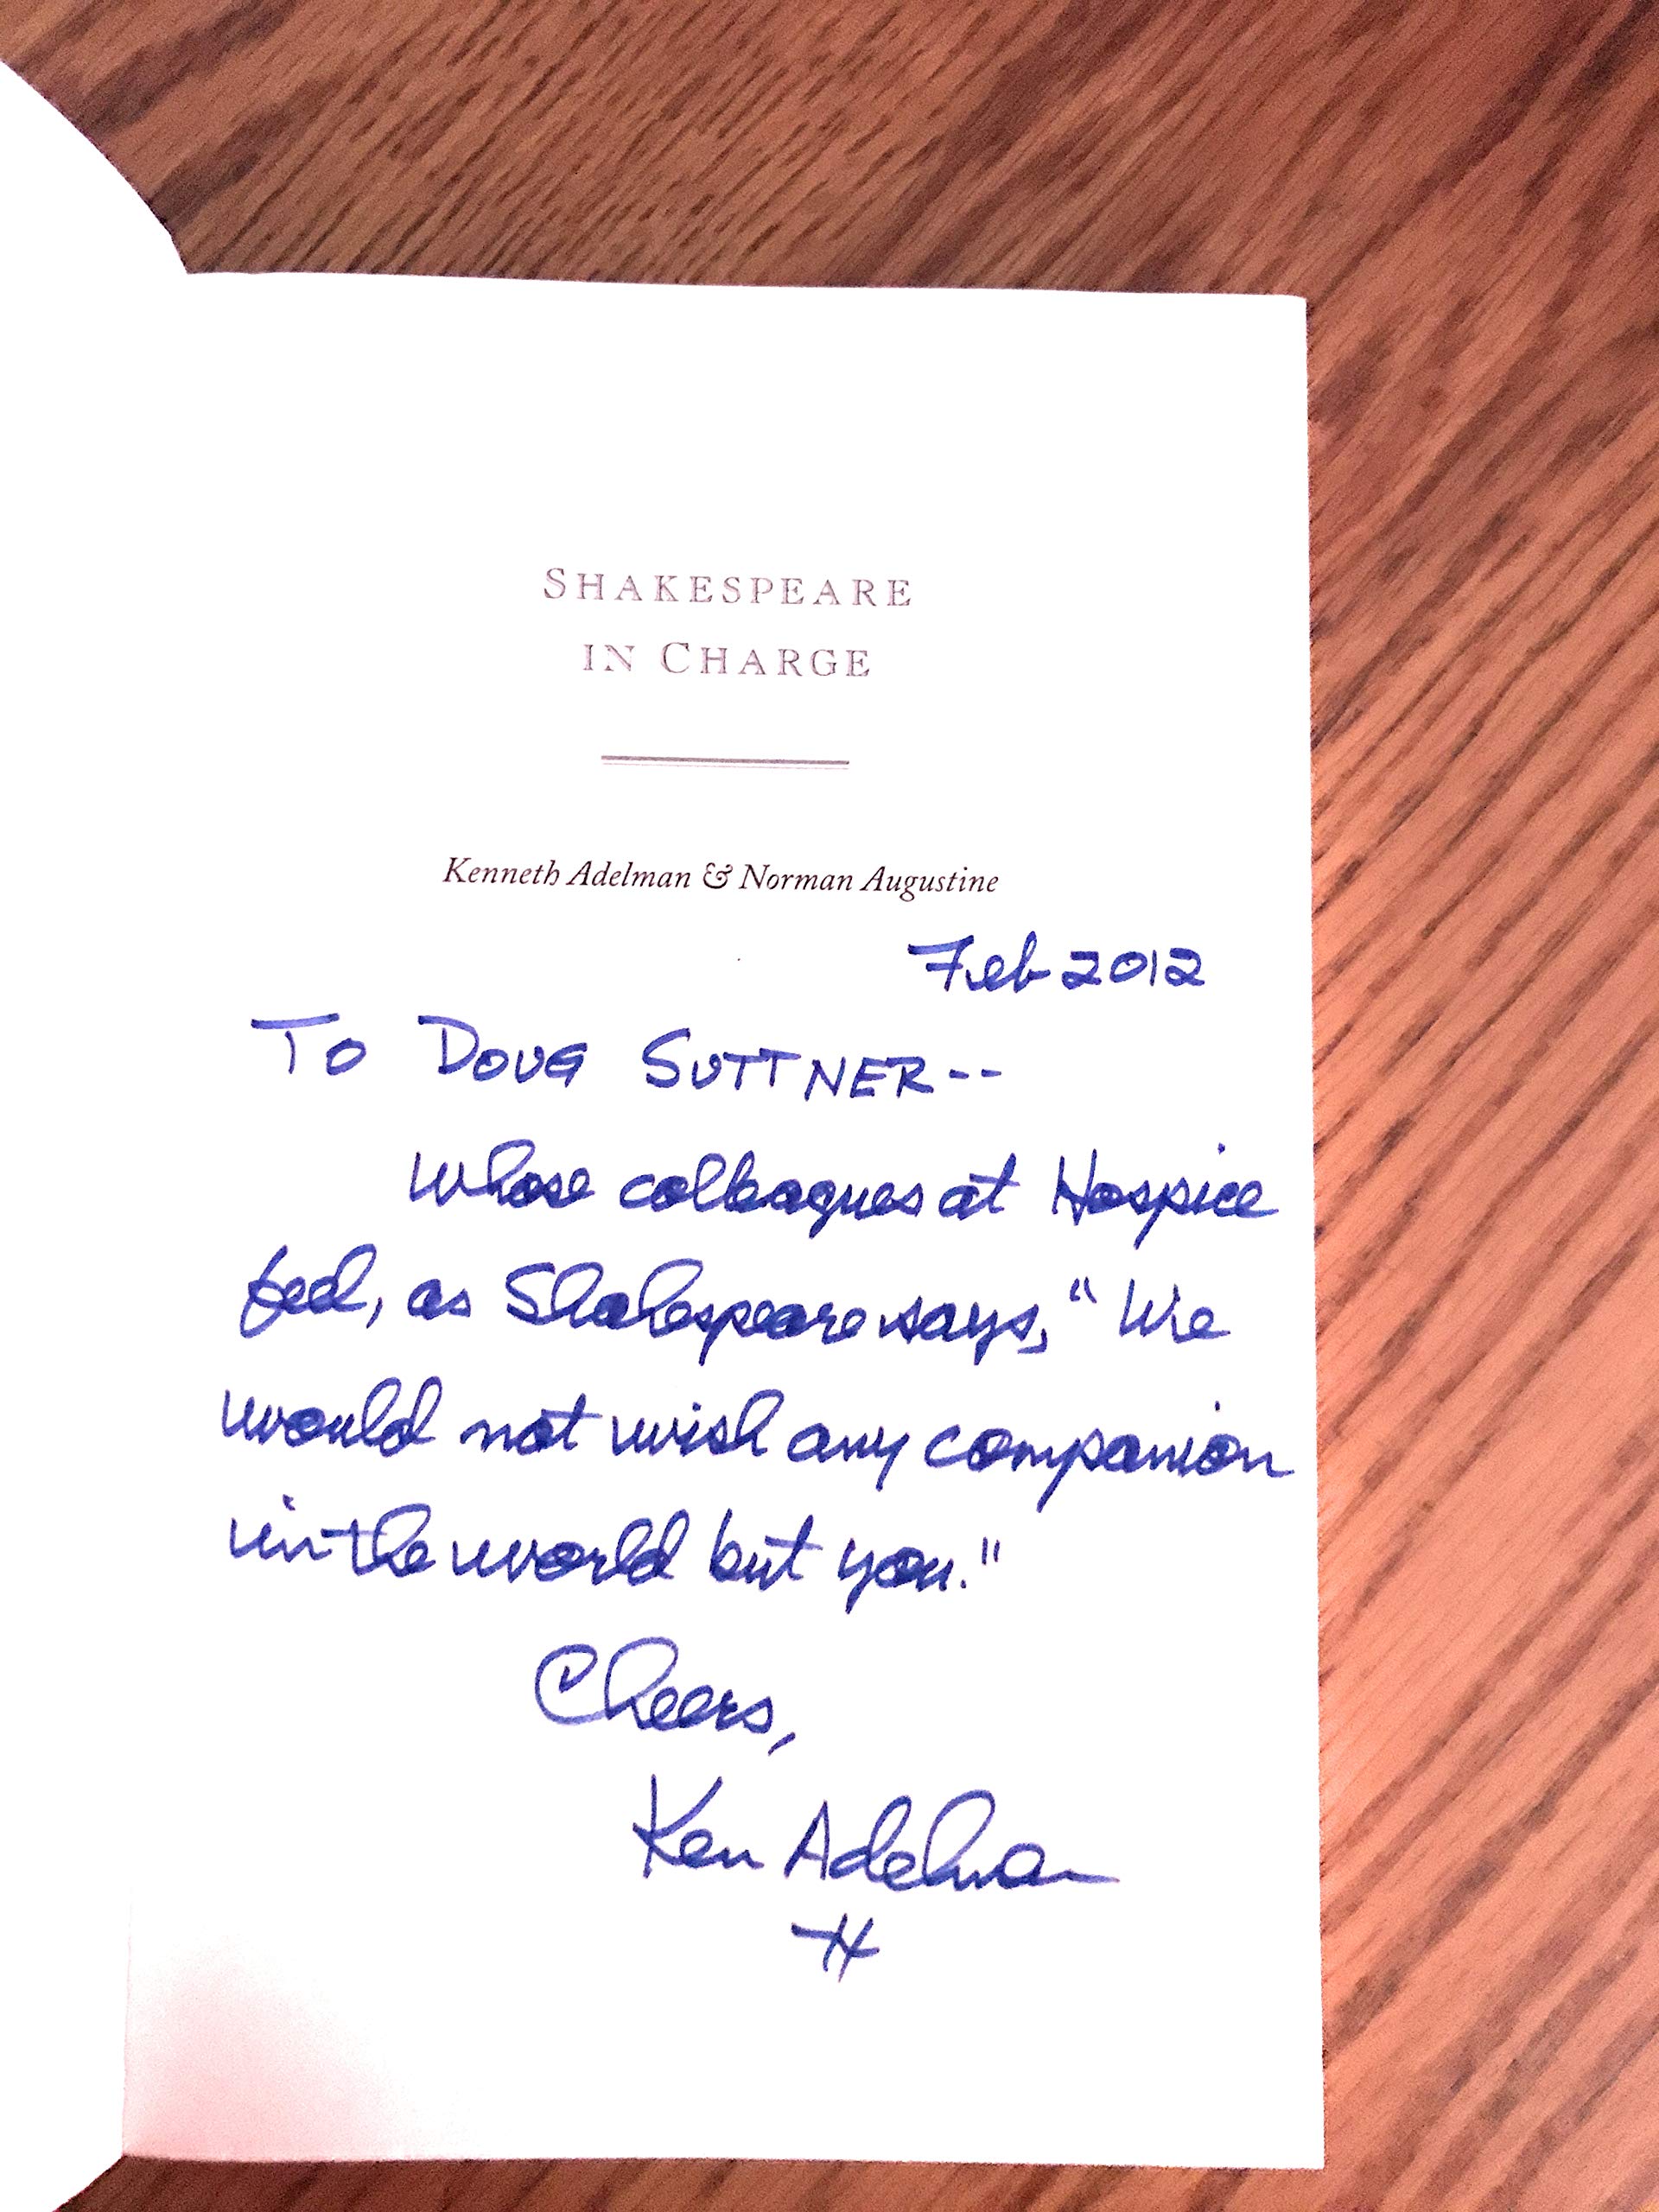 SHAKESPEARE
IN CHARGE
Kenneth Adelman & Norman Augustine
Feb 2012
TO DOUG SUTTNER--
whose colleagues at Hospice
feel, as Shakespeare says, "We
would not wish any companion
in the world but you."
Cheers,
Ken Adelman